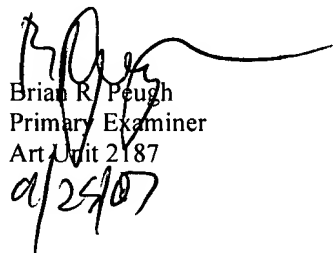 Brian R. Peugh
Primary Examiner
Art Unit 2187
9/25/07